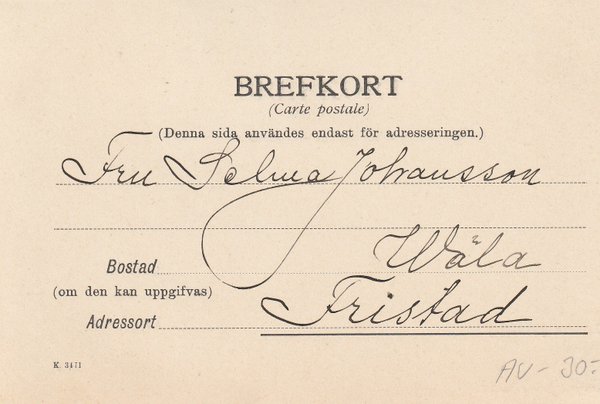 BREFKORT
(Carte postale)
(Denna sida användes endast för adresseringen.)
Fru Selma Johansson
Bostad Wäla
(om den kan uppgifvas)
Adressort Fristad
K. 3471
AV- 30:-